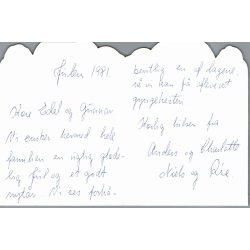 Julen 1981.
Kære Edel og Gunnar
Vi ønsker hermed hele
familien en rigtig glæde-
lig jul og et godt
nytår. Vi ses forhå-
bentlig en af dagene,
så vi kan få afleveret
gyngehesten
Kærlig hilsen fra
Anders og Charlotte
Niels og